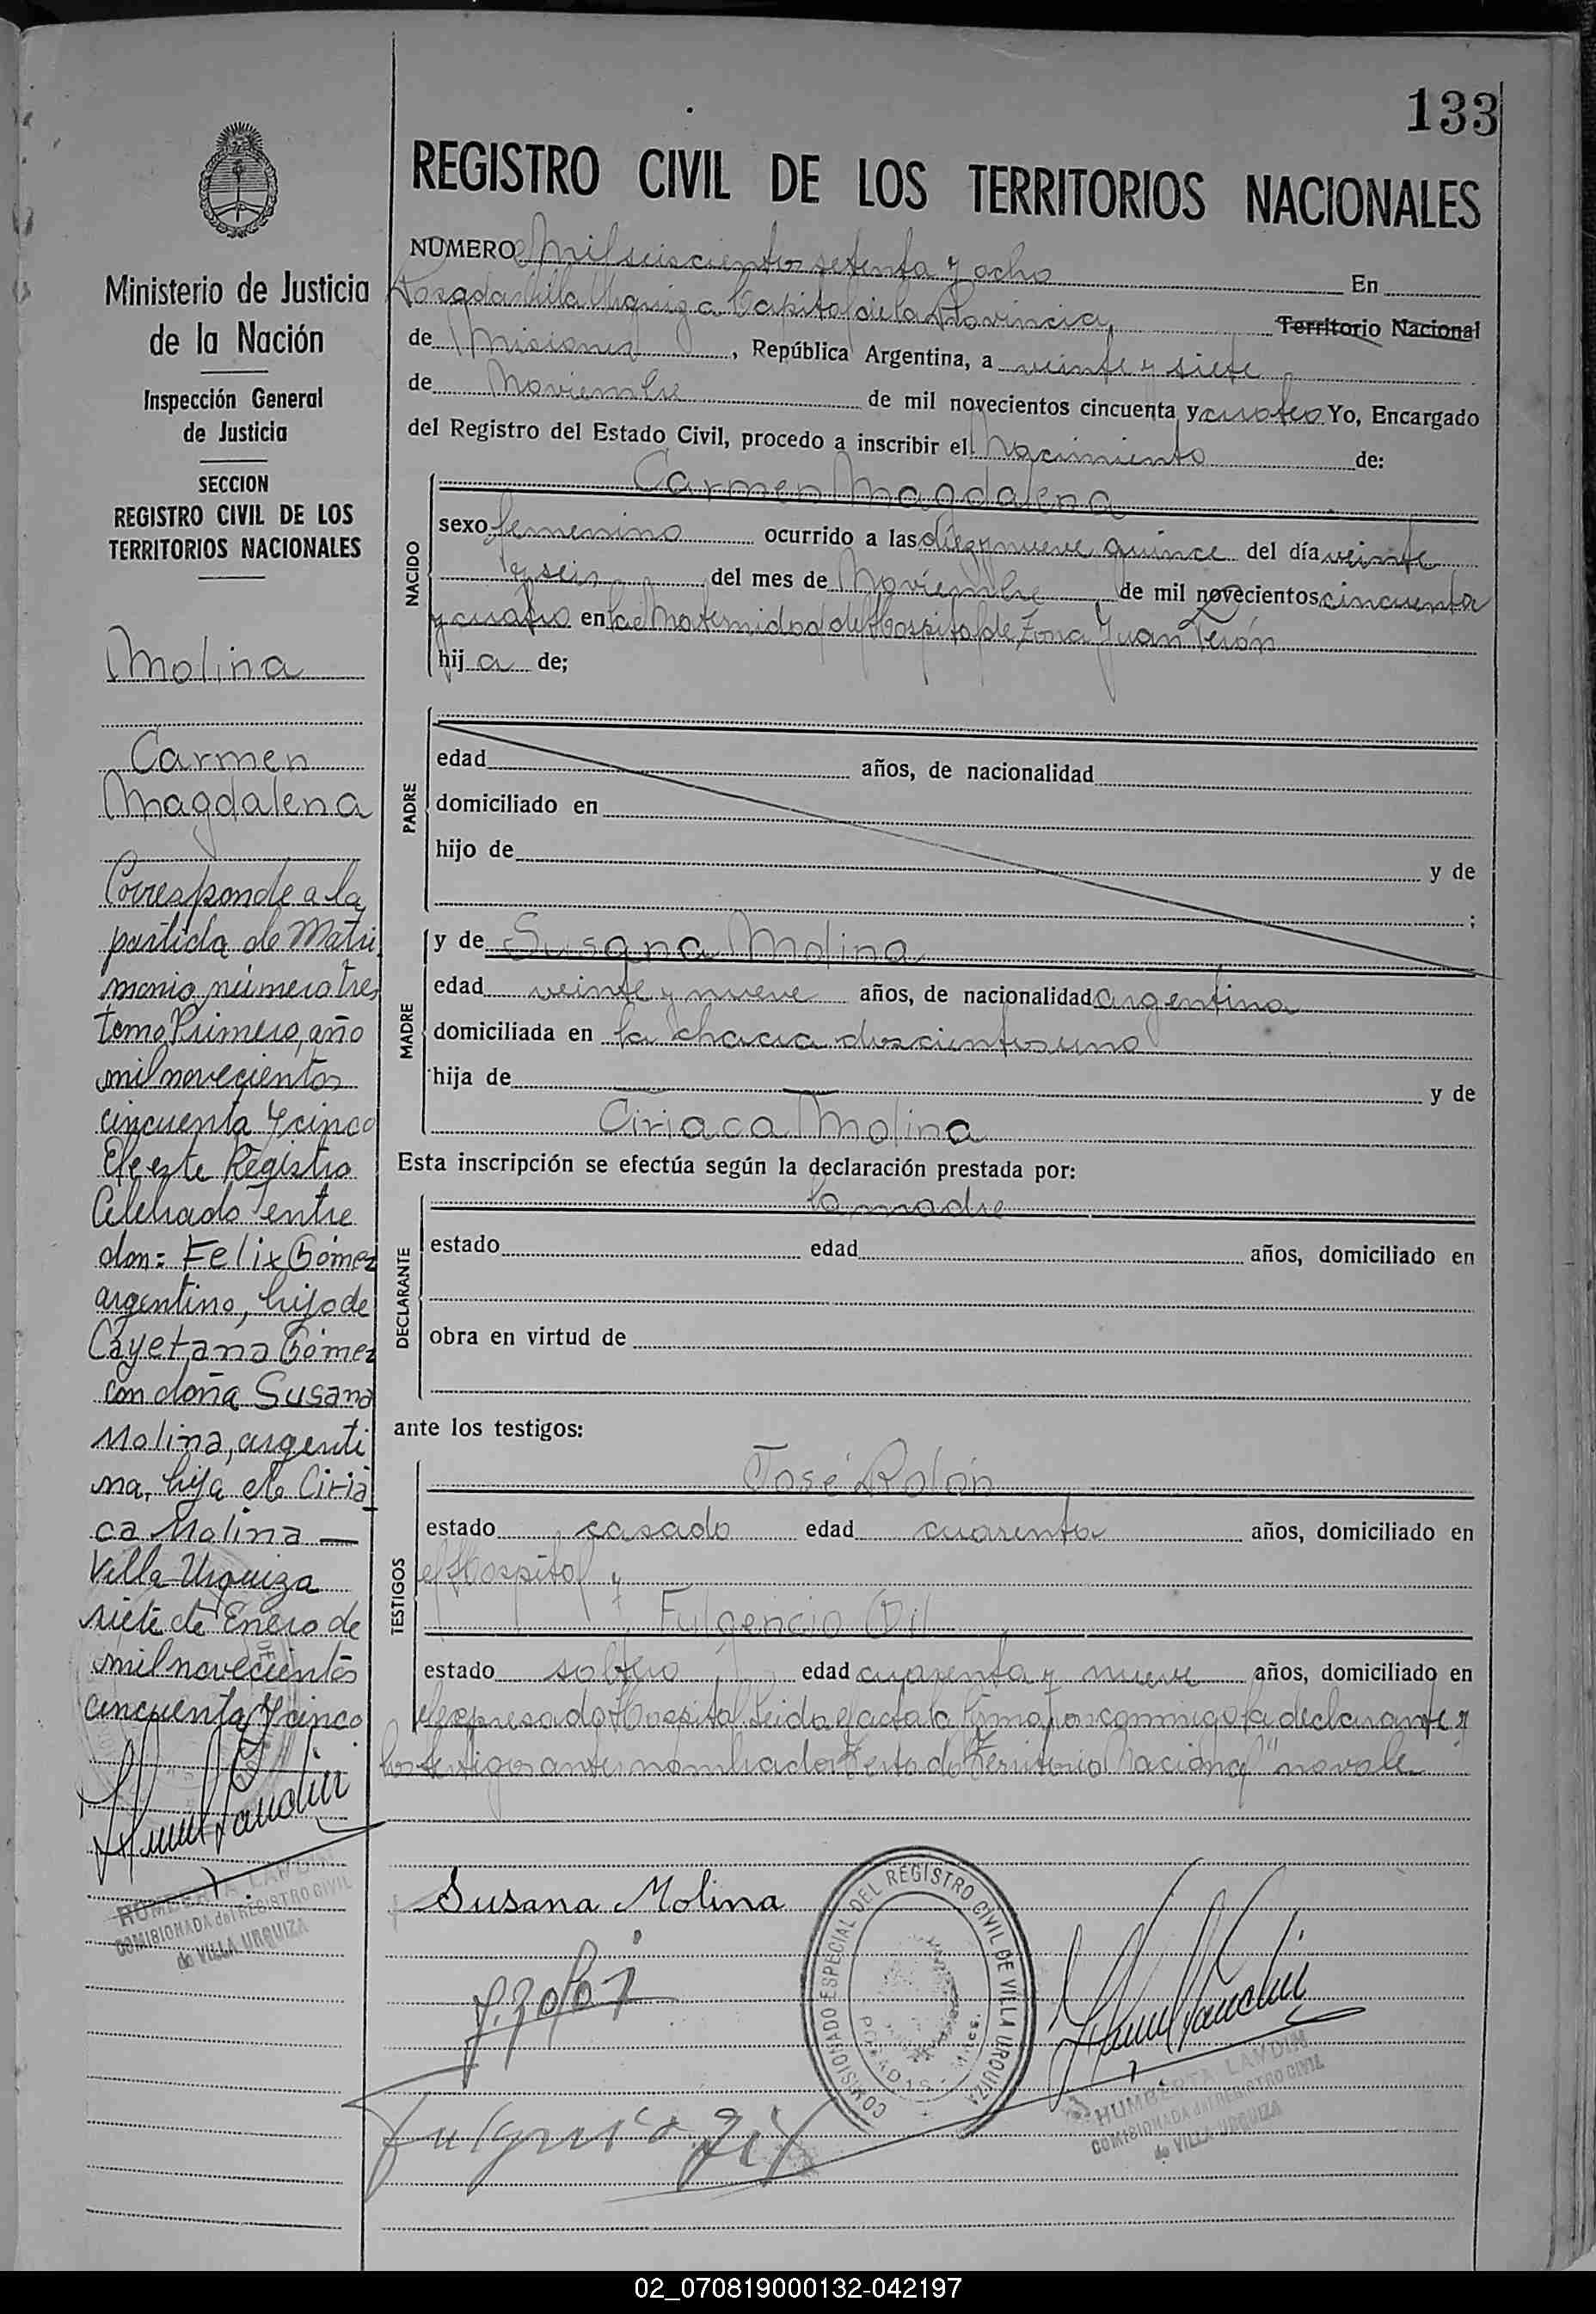 133
REGISTRO CIVIL DE LOS TERRITORIOS NACIONALES
Ministerio de Justicia
de la Nación
Inspección General
de Justicia
SECCION
REGISTRO CIVIL DE LOS
TERRITORIOS NACIONALES
Molina
Carmen
Magdalena
Corresponde a la
partida de Matri
monio número tres
tomo Primero, año
mil novecientos
cincuenta y cinco
de este Registro
Celebrado entre
don: Felix Gómez
argentino, hijo de
Cayetana Gómez
con doña Susana
Molina, argenti
na, hija de Ciria
ca Molina —
Villa Urquiza
siete de Enero de
mil novecientos
cincuenta y cinco
HUMBERTA LANDIN
COMISIONADA del REGISTRO CIVIL
de VILLA URQUIZA
NUMERO Mil seiscientos setenta y ocho En
Posadas Villa Urquiza Capital de la Provincia, Territorio Nacional
de Misiones, República Argentina, a veinte y siete
de Noviembre de mil novecientos cincuenta y cuatro Yo, Encargado
del Registro del Estado Civil, procedo a inscribir el Nacimiento de:
NACIDO
Carmen Magdalena
sexo femenino ocurrido a las diez y nueve quince del día veinte
y seis del mes de Noviembre de mil novecientos cincuenta
y cuatro en la Maternidad del Hospital de Zona Juan Perón
hija de;
PADRE
edad años, de nacionalidad
domiciliado en
hijo de y de
;
MADRE
y de Susana Molina
edad veinte y nueve años, de nacionalidad argentina
domiciliada en la chacra doscientos uno
hija de — y de
Ciriaca Molina
Esta inscripción se efectúa según la declaración prestada por:
DECLARANTE
la madre
estado edad años, domiciliado en
obra en virtud de
ante los testigos:
TESTIGOS
José Rolón
estado casado edad cuarenta años, domiciliado en
el Hospital y
Fulgencio Gil
estado soltero edad cuarenta y nueve años, domiciliado en
el expresado Hospital. Leida el acta la firmaron conmigo la declarante y
los testigos antes nombrados Testado "Territorio Nacional" no vale
Susana Molina
COMISIONADO ESPECIAL DEL REGISTRO CIVIL DE VILLA URQUIZA
POSADAS - Mnes.
HUMBERTA LANDIN
COMISIONADA del REGISTRO CIVIL
de VILLA URQUIZA
02_070819000132-042197